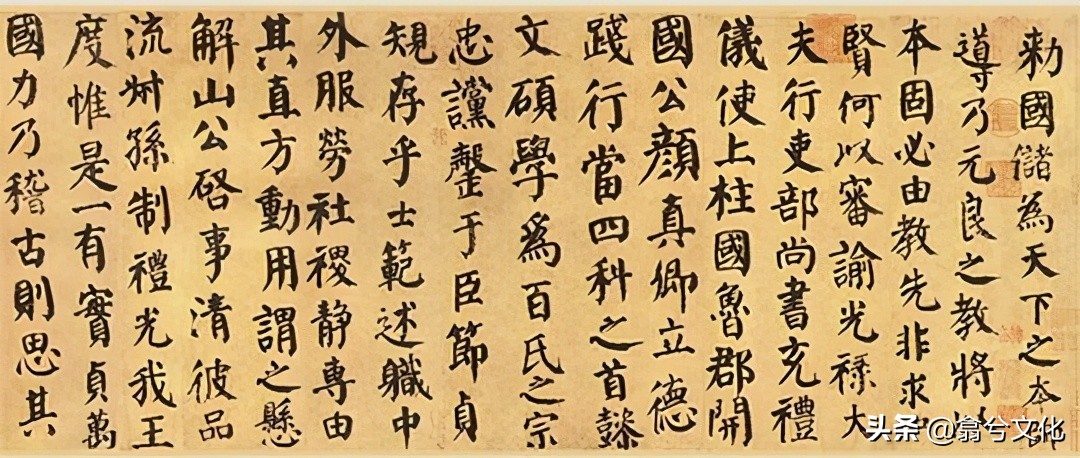 勅國儲為天下之本師
導乃元良之教將以
本固必由教先非求
賢何以審諭光祿大
夫行吏部尚書充禮
儀使上柱國魯郡開
國公顏真卿立德
踐行當四科之首懿
文碩學為百氏之宗
忠讜罄于臣節貞
規存乎士範述職中
外服勞社稷靜專由
其直方動用謂之懸
解山公啓事清彼品
流叔孫制禮光我王
度惟是一有實貞萬
國力乃稽古則思其
头条 @翕兮文化